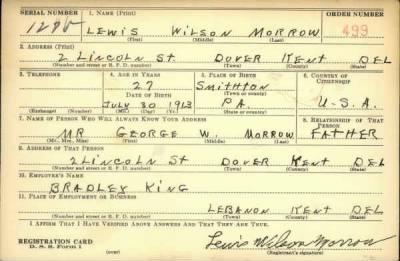 SERIAL NUMBER 1. NAME (Print) ORDER NUMBER
LEWIS WILSON MORROW 499
(First) (Middle) (Last)
2. ADDRESS (Print)
2 LINCOLN ST DOVER KENT DEL
(Number and street or R. F. D. number) (Town) (County) (State)
3. TELEPHONE 4. AGE IN YEARS 5. PLACE OF BIRTH 6. COUNTRY OF CITIZENSHIP
27 SMITHTON
DATE OF BIRTH (Town or county)
JULY 30 1913 PA. U.S.A.
(Exchange) (Number) (Mo.) (Day) (Yr.) (State or country)
7. NAME OF PERSON WHO WILL ALWAYS KNOW YOUR ADDRESS 8. RELATIONSHIP OF THAT PERSON
MR GEORGE W. MORROW FATHER
(Mr., Mrs., Miss) (First) (Middle) (Last)
9. ADDRESS OF THAT PERSON
2 LINCOLN ST DOVER KENT DEL
(Number and street or R. F. D. number) (Town) (County) (State)
10. EMPLOYER'S NAME
BRADLEY KING
11. PLACE OF EMPLOYMENT OR BUSINESS
LEBANON KENT DEL
(Number and street or R. F. D. number) (Town) (County) (State)
I AFFIRM THAT I HAVE VERIFIED ABOVE ANSWERS AND THAT THEY ARE TRUE.
REGISTRATION CARD Lewis Wilson Morrow
D. S. S. Form 1 (over) (Registrant's signature)